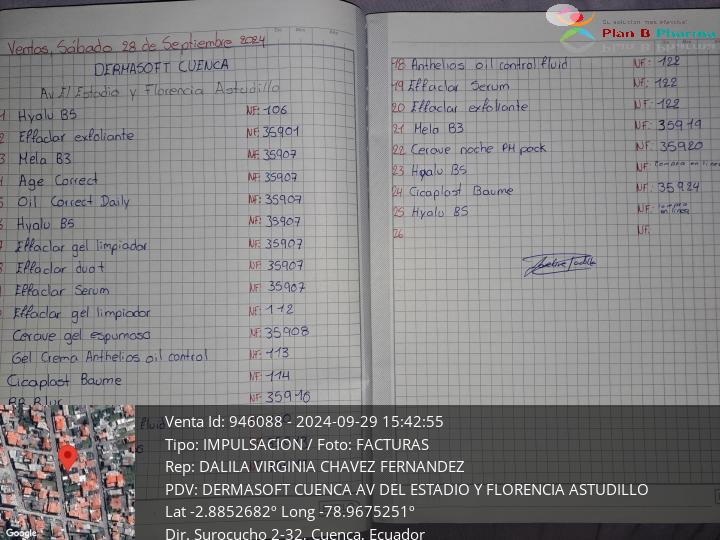 Ventas, Sábado 28 de Septiembre 2024
DERMASOFT CUENCA
Av El Estadio y Florencia Astudillo
1 Hyalu B5 NF: 106
2 Effaclar exfoliante NF: 35901
3 Mela B3 NF: 35907
Age Correct NF: 35907
5 Oil Correct Daily NF: 35907
6 Hyalu B5 NF: 35907
7 Effaclar gel limpiador NF: 35907
8 Effaclar duo+ NF: 35907
Effaclar Serum NF: 35907
Effaclar gel limpiador NF: 112
Cerave gel espumoso NF: 35908
Gel Crema Anthelios oil control NF: 113
Cicaplast Baume NF: 114
BB Blur NF: 35916
fluid
18 Anthelios oil control fluid NF: 122
19 Effaclar Serum NF: 122
20 Effaclar exfoliante NF: 122
21 Mela B3 NF: 35919
22 Cerave noche PM pack NF: 35920
23 Hyalu B5 NF: Compra en linea
24 Cicaplast Baume NF: 35924
25 Hyalu B5 NF: compra en linea
26 NF:
Su solución más efectiva!
Plan B Pharma
Venta Id: 946088 - 2024-09-29 15:42:55
Tipo: IMPULSACION / Foto: FACTURAS
Rep: DALILA VIRGINIA CHAVEZ FERNANDEZ
PDV: DERMASOFT CUENCA AV DEL ESTADIO Y FLORENCIA ASTUDILLO
Lat -2.8852682º Long -78.9675251º
Dir. Surocucho 2-32, Cuenca, Ecuador
Google